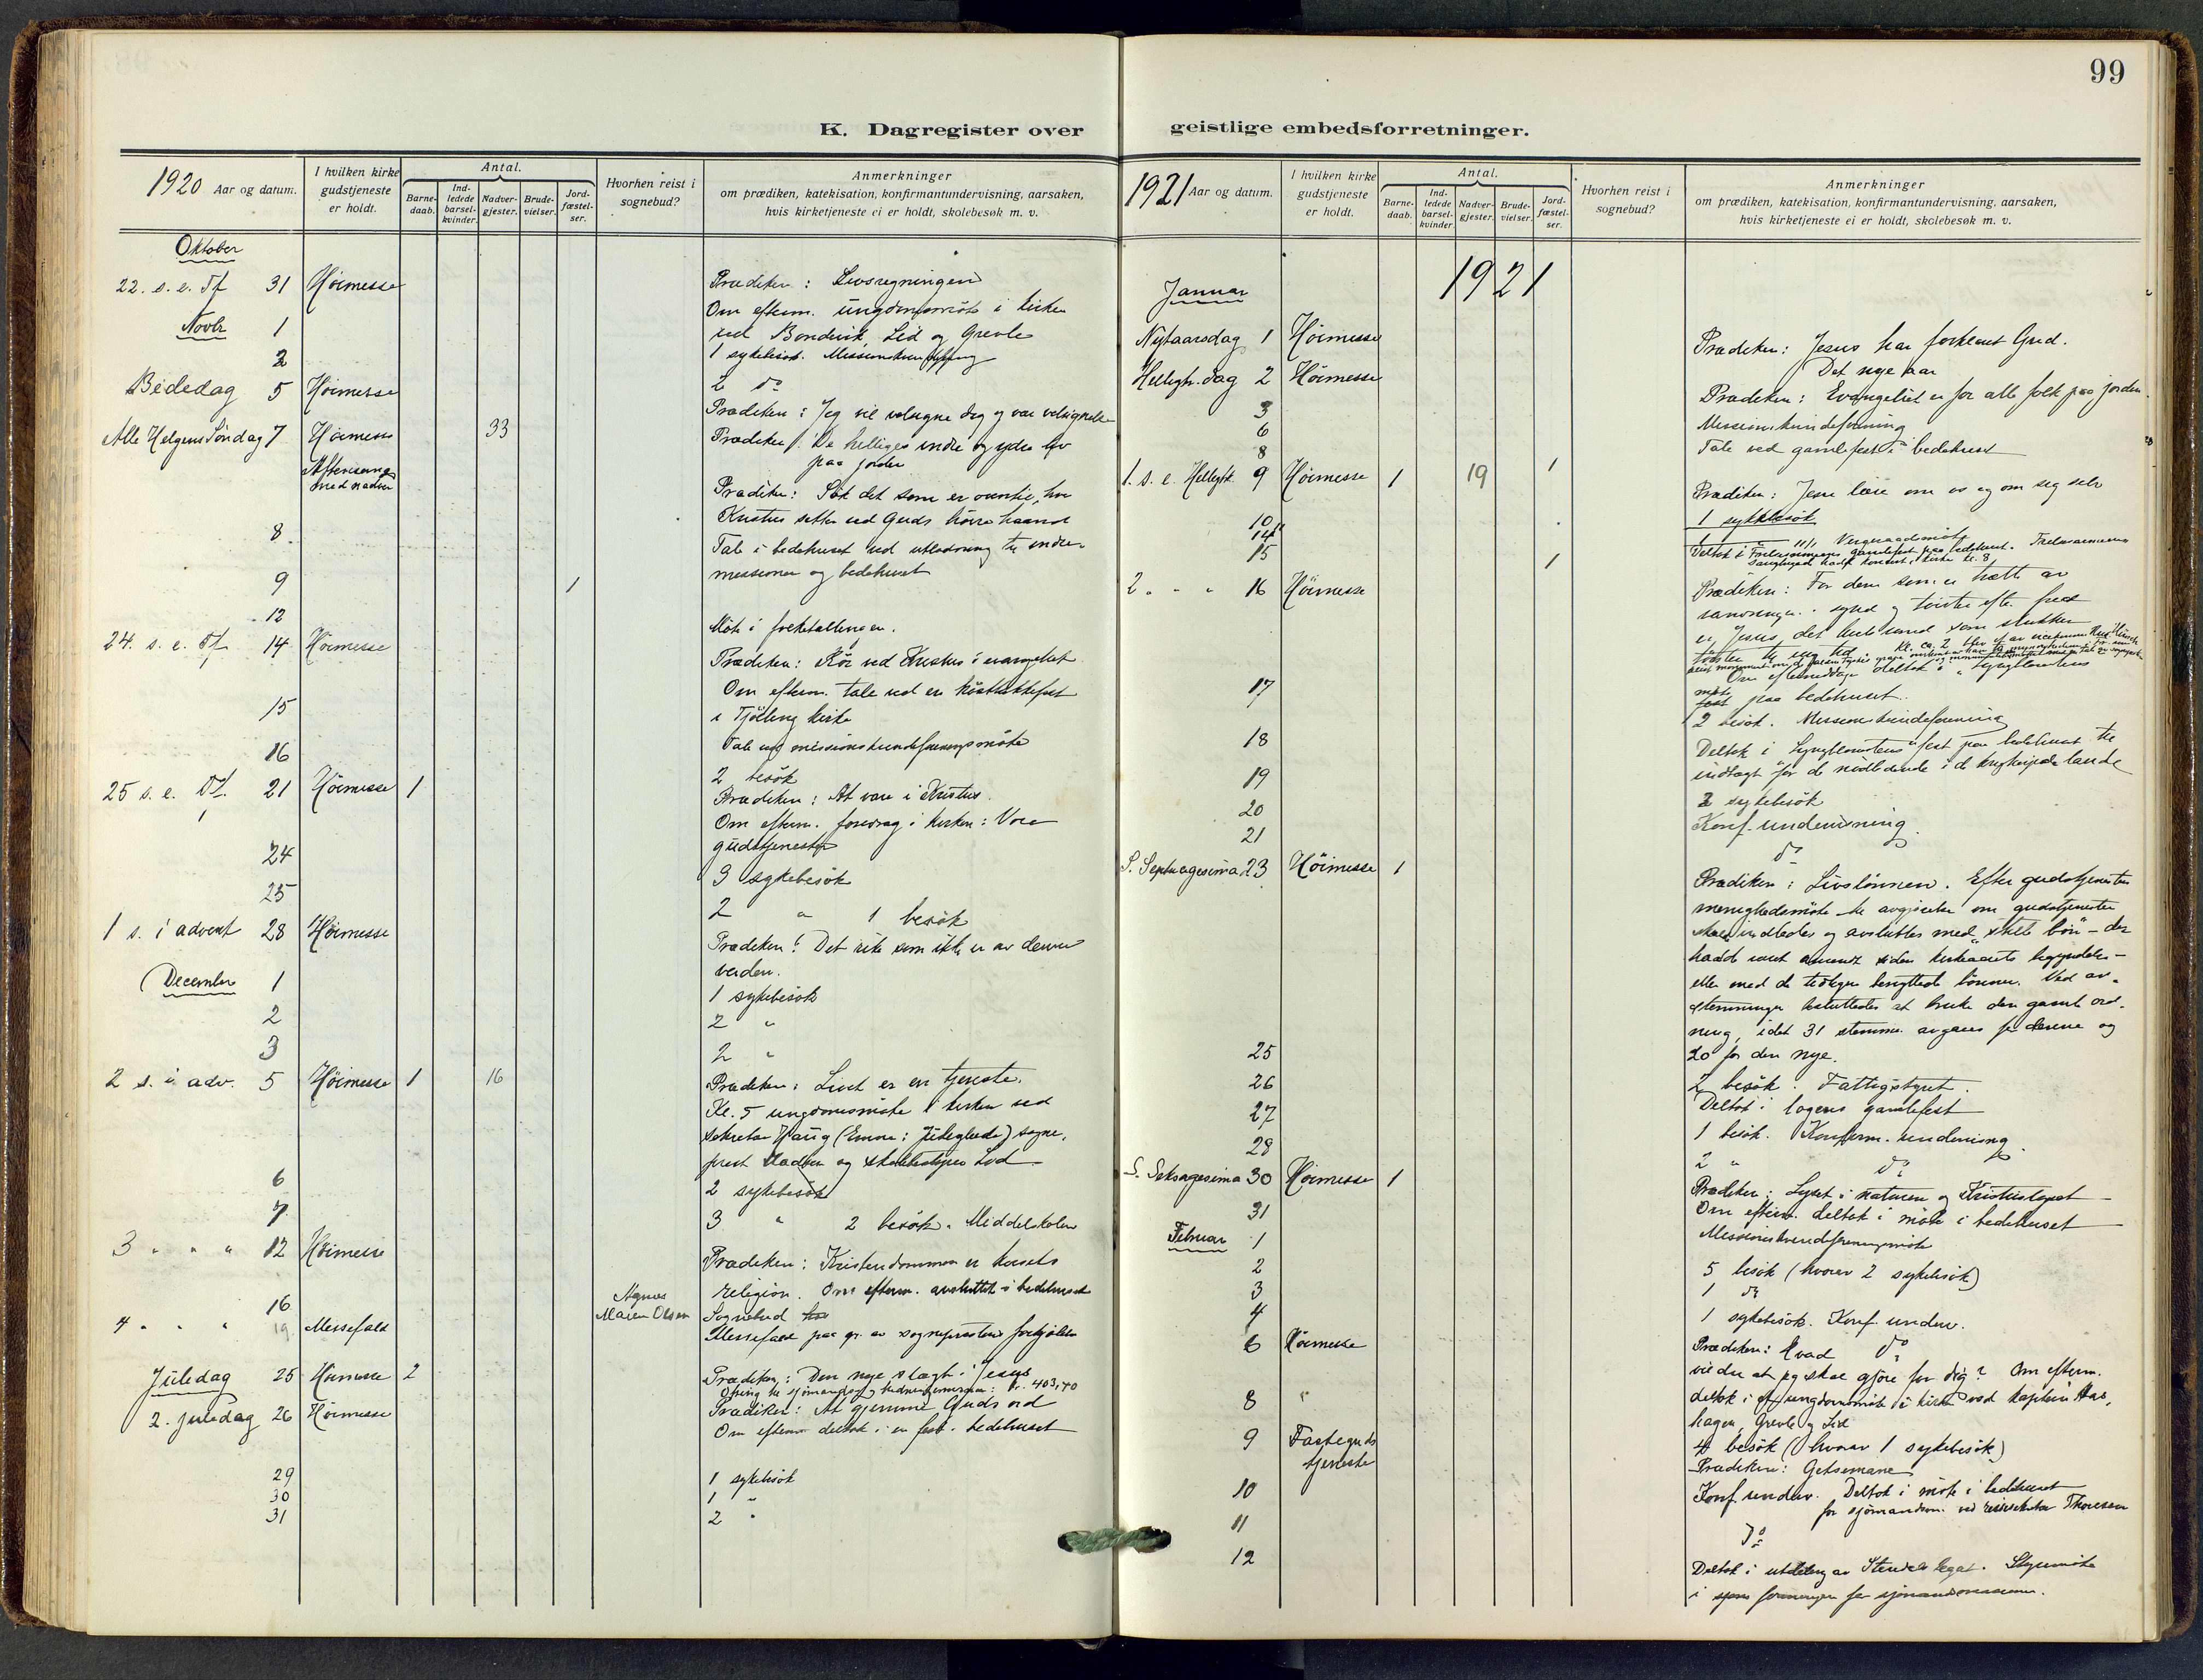 99
K. Dagregister over geistlige embedsforretninger.
1920 Aar og datum.
I hvilken kirke gudstjeneste er holdt.
Antal.
Barne-daab.
Ind-ledede barsel-kvinder.
Nadver-gjester.
Brude-vielser.
Jord-fæstel-ser.
Hvorhen reist i sognebud?
Anmerkninger
om prædiken, katekisation, konfirmantundervisning, aarsaken,
hvis kirketjeneste ei er holdt, skolebesøk m. v.
Oktober
22. s. e. Tf 31 Höimesse Prædiken: Livsregningen
Om efterm. ungdomsmöte i kirken
Novbr 1 ved Bondevik, Lid og Grevle
1 sykebesök.
2 2 do
Bededag 5 Höimesse Prædiken: Jeg vil velsigne dig og vær velsignelse
Alle Helgens Söndag 7 Höimesse 33 Prædiken: De helliges indre og ydre liv
paa jorden
Aftensang med nadver Prædiken: Sök det som er oventil, hvor
Kristus sitter ved Guds höire haand
8. Tale i bedehuset ved utlodning til indre-
missionen og bedehuset
9 1
12 Möte i folketællingen.
24. s. e. Tf 14 Höimesse Prædiken: Kor ved Kristus i evangeliet
Om efterm. tale ved en hösttakkefest
i Tjölling kirke
15 Tale ved missionskvindeforeningsmöte
16 2 besök
25 s. e. Tf. 21 Höimesse 1 Prædiken: At være i Kristus.
Om efterm. foredrag i kirken: Vore
gudstjenester
24 3 sykebesök
25 2 " 1 besök
1 s. i advent 28 Höimesse Prædiken: Det rike som ikke er av denne
verden.
December 1 1 sykebesök
2 2 "
3 2 "
2 s. i adv. 5 Höimesse 1 16 Prædiken: Livet er en tjeneste.
Kl. 5 ungdomsmöte i kirken ved
sekretær Haug (Emne: Juleglæde) sogne-
prest Madsen og skolebestyrer Lid
6 2 sykebesök
7 3 " 2 besök. Middelskolen
3 " " " 12 Höimesse Prædiken: Kristendommen er korsets
religion. Om efterm. avsluttet i bedehuset
16 Agnes Maren Olsen Sognebud
4 " " " 19 Messefald Messefald paa gr. av sogneprestens forkjölelse
Juledag 25 Höimesse 2 Prædiken: Den nye slægt i Jesus
Ofring til sjömands og hedningemissionen: Kr. 403,40
2. juledag 26 Höimesse Prædiken: At gjemme Guds ord
Om efterm deltok i en fest i bedehuset
29 1 sykebesök
30 1 "
31 2 "
1921 Aar og datum.
I hvilken kirke gudstjeneste er holdt.
Antal.
Barne-daab.
Ind-ledede barsel-kvinder.
Nadver-gjester.
Brude-vielser.
Jord-fæstel-ser.
Hvorhen reist i sognebud?
Anmerkninger
om prædiken, katekisation, konfirmantundervisning, aarsaken,
hvis kirketjeneste ei er holdt, skolebesøk m. v.
1921
Januar
Nytaarsdag 1 Höimesse Prædiken: Jesus har forklaret Gud.
Det nye aar
Helligtr. dag 2 Höimesse Prædiken: Evangeliet er for alle folk paa jorden.
3 Missionskvindeforening
6 Tale ved gamlefest i bedehuset
8
1. s. e. Helligtr. 9 Höimesse 1 19 1 Prædiken: Jesu lære om os og om seg selv
10 1 sykebesök
14
15 1 Deltok i Frelsesarmeens gamlefest paa bedehuset. Frelsesarmeens
2 " " " 16 Höimesse Prædiken: For dem som er trætte av
vandringen i synd og törster efter fred
er Jesus det levende vand som slukker
törsten til evig tid
Om eftermiddagen deltok i "Lyngblomstens"
möte paa bedehuset.
17 2 besök. Missionskvindeforening
18 Deltok i Lyngblomstens fest paa bedehuset til
indtægt for de nödlidende i de krigherjede lande
19 2 sykebesök
20 Konf. undervisning.
21 do
S. Septuagesima 23 Höimesse 1 Prædiken: Livslönnen. Efter gudstjenesten
menighedsmöte til avgjörelse om gudstjenesten
skal indledes og avsluttes med "stille bön" – der
hadde været anvendt siden kirkeaarets begyndelse –
eller med de tidligere benyttede bönner. Ved av-
stemningen besluttedes at bruke den gamle ord-
ning, idet 31 stemmer avgaves for denne og
20 for den nye.
25 2 besök. Fattigstyret.
26 Deltok i logens gamlefest
27 1 besök. Konfirm. undervisning.
28 2 " do
S. Seksagesima 30 Höimesse 1 Prædiken: Lyset i naturen og Kristuslyset
Om efterm. deltok i möte i bedehuset
31 Missionskvindeforeningsmöte
Februar 1 5 besök (hvorav 2 sykebesök)
2 1 do
3 1 sykebesök. Konf. underv.
4 do
6 Höimesse Prædiken: Hvad
vil du at jeg skal gjöre for dig? Om efterm.
deltok i et ungdomsmöte i kirken ved kaptein Aas-
hagen, Grevle og Lid
8 " 4 besök (hvorav 1 sykebesök)
9 Fastegudstjeneste Prædiken: Getsemane
10 Konf. underv. Deltok i möte i bedehuset
for sjömandsm. ved reisesekretær Thoresen
11 do
12 Deltok i utdeling av Stendes legat. Styremöte
i foreningen for sjömandsmissionen.